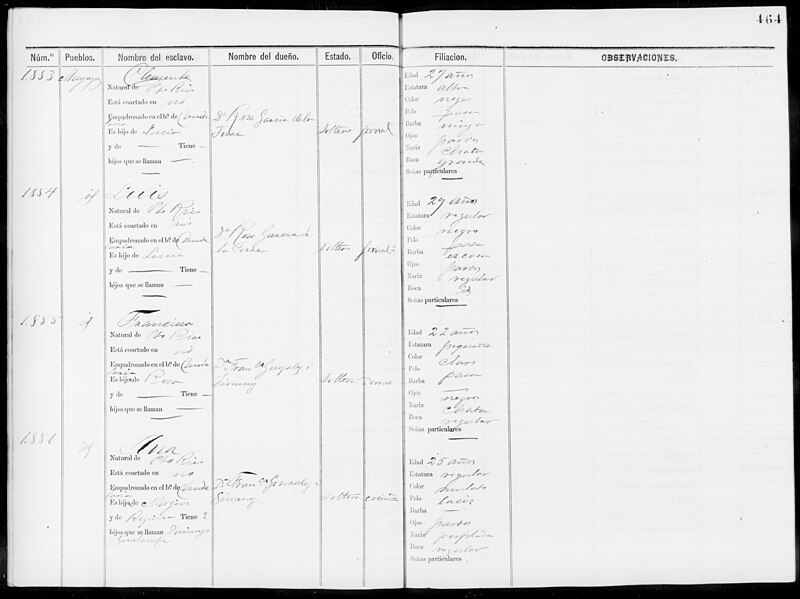 464
Núm.º Pueblos. Nombre del esclavo. Nombre del dueño. Estado. Oficio. Filiacion. OBSERVACIONES.
1883 Clemente
Natural de Pto Rico
Está coartado en no
Empadronado en el bº de Cande
laria
Es hijo de Lucia
y de — Tiene —
hijos que se llaman —
Dª Rosa Garcia de la
Torre
soltero jornal
Edad 27 años
Estatura alta
Color negro
Pelo pasa
Barba ninga
Ojos pardos
Nariz chata
Boca grande
Señas particulares —
1884 id Luis
Natural de Pto Rico
Está coartado en no
Empadronado en el bº de Cande
laria
Es hijo de Lucia
y de — Tiene —
hijos que se llaman —
Dª Rosa Garcia de
la Torre
soltero jornal
Edad 29 años
Estatura regular
Color negro
Pelo pasa
Barba escasa
Ojos pardos
Nariz regular
Boca id
Señas particulares —
1885 id Francisca
Natural de Pto Rico
Está coartado en no
Empadronado en el bº de Cande
laria
Es hijo de Rosa
y de — Tiene —
hijos que se llaman —
Dª Franca Gonzalez i
soltera
Edad 22 años
Estatura pequeña
Color claro
Pelo pasa
Barba —
Ojos negros
Nariz chata
Boca regular
Señas particulares —
1886 id Ana
Natural de Pto Rico
Está coartado en no
Empadronado en el bº de Cande
laria
Es hijo de
y de Tiene 2
hijos que se llaman Domingo
Guadalupe
Dª Franca Gonzalez i
soltera
Edad 25 años
Estatura regular
Color mulato
Pelo lacio
Barba —
Ojos pardos
Nariz perfilada
Boca regular
Señas particulares.